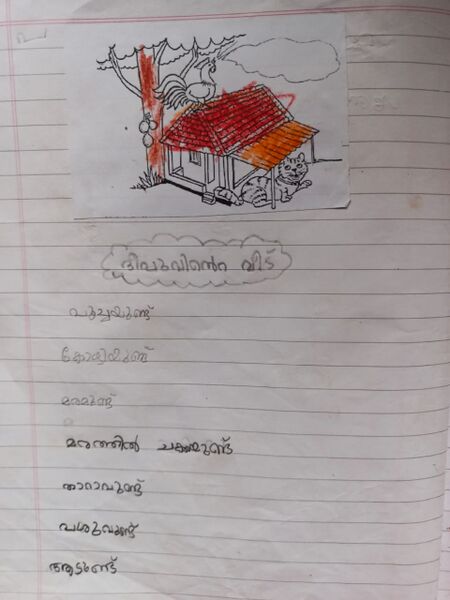 ദീപുവിൻെറ വീട്
പൂച്ചയുണ്ട്
കോഴിയുണ്ട്
മരമുണ്ട്
മരത്തിൽ ചക്കയുണ്ട്
താറാവുണ്ട്
പശുവുണ്ട്
ആടുണ്ട്